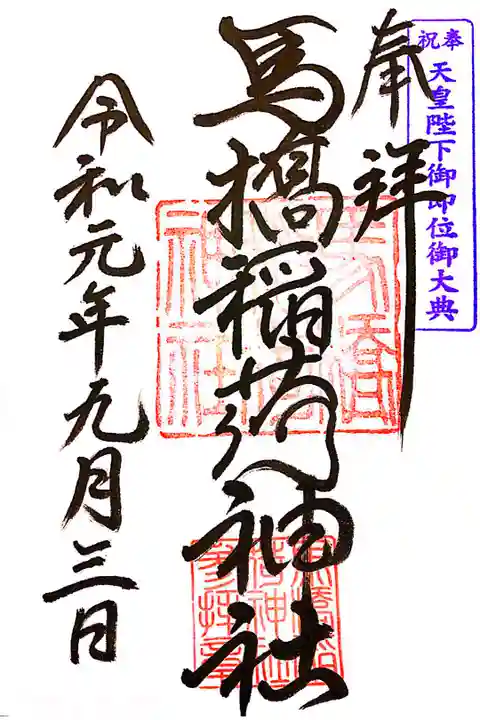 奉祝
天皇陛下御即位御大典
奉拝
馬橋稲荷神社
令和元年九月三日